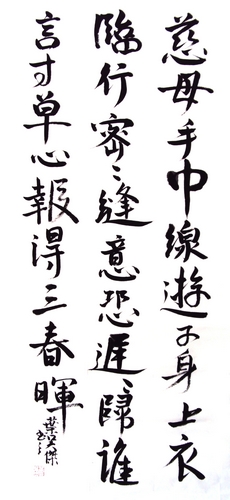 慈母手巾線遊子身上衣
臨行密〻縫意恐遲〻歸誰
言寸草心報得三春暉